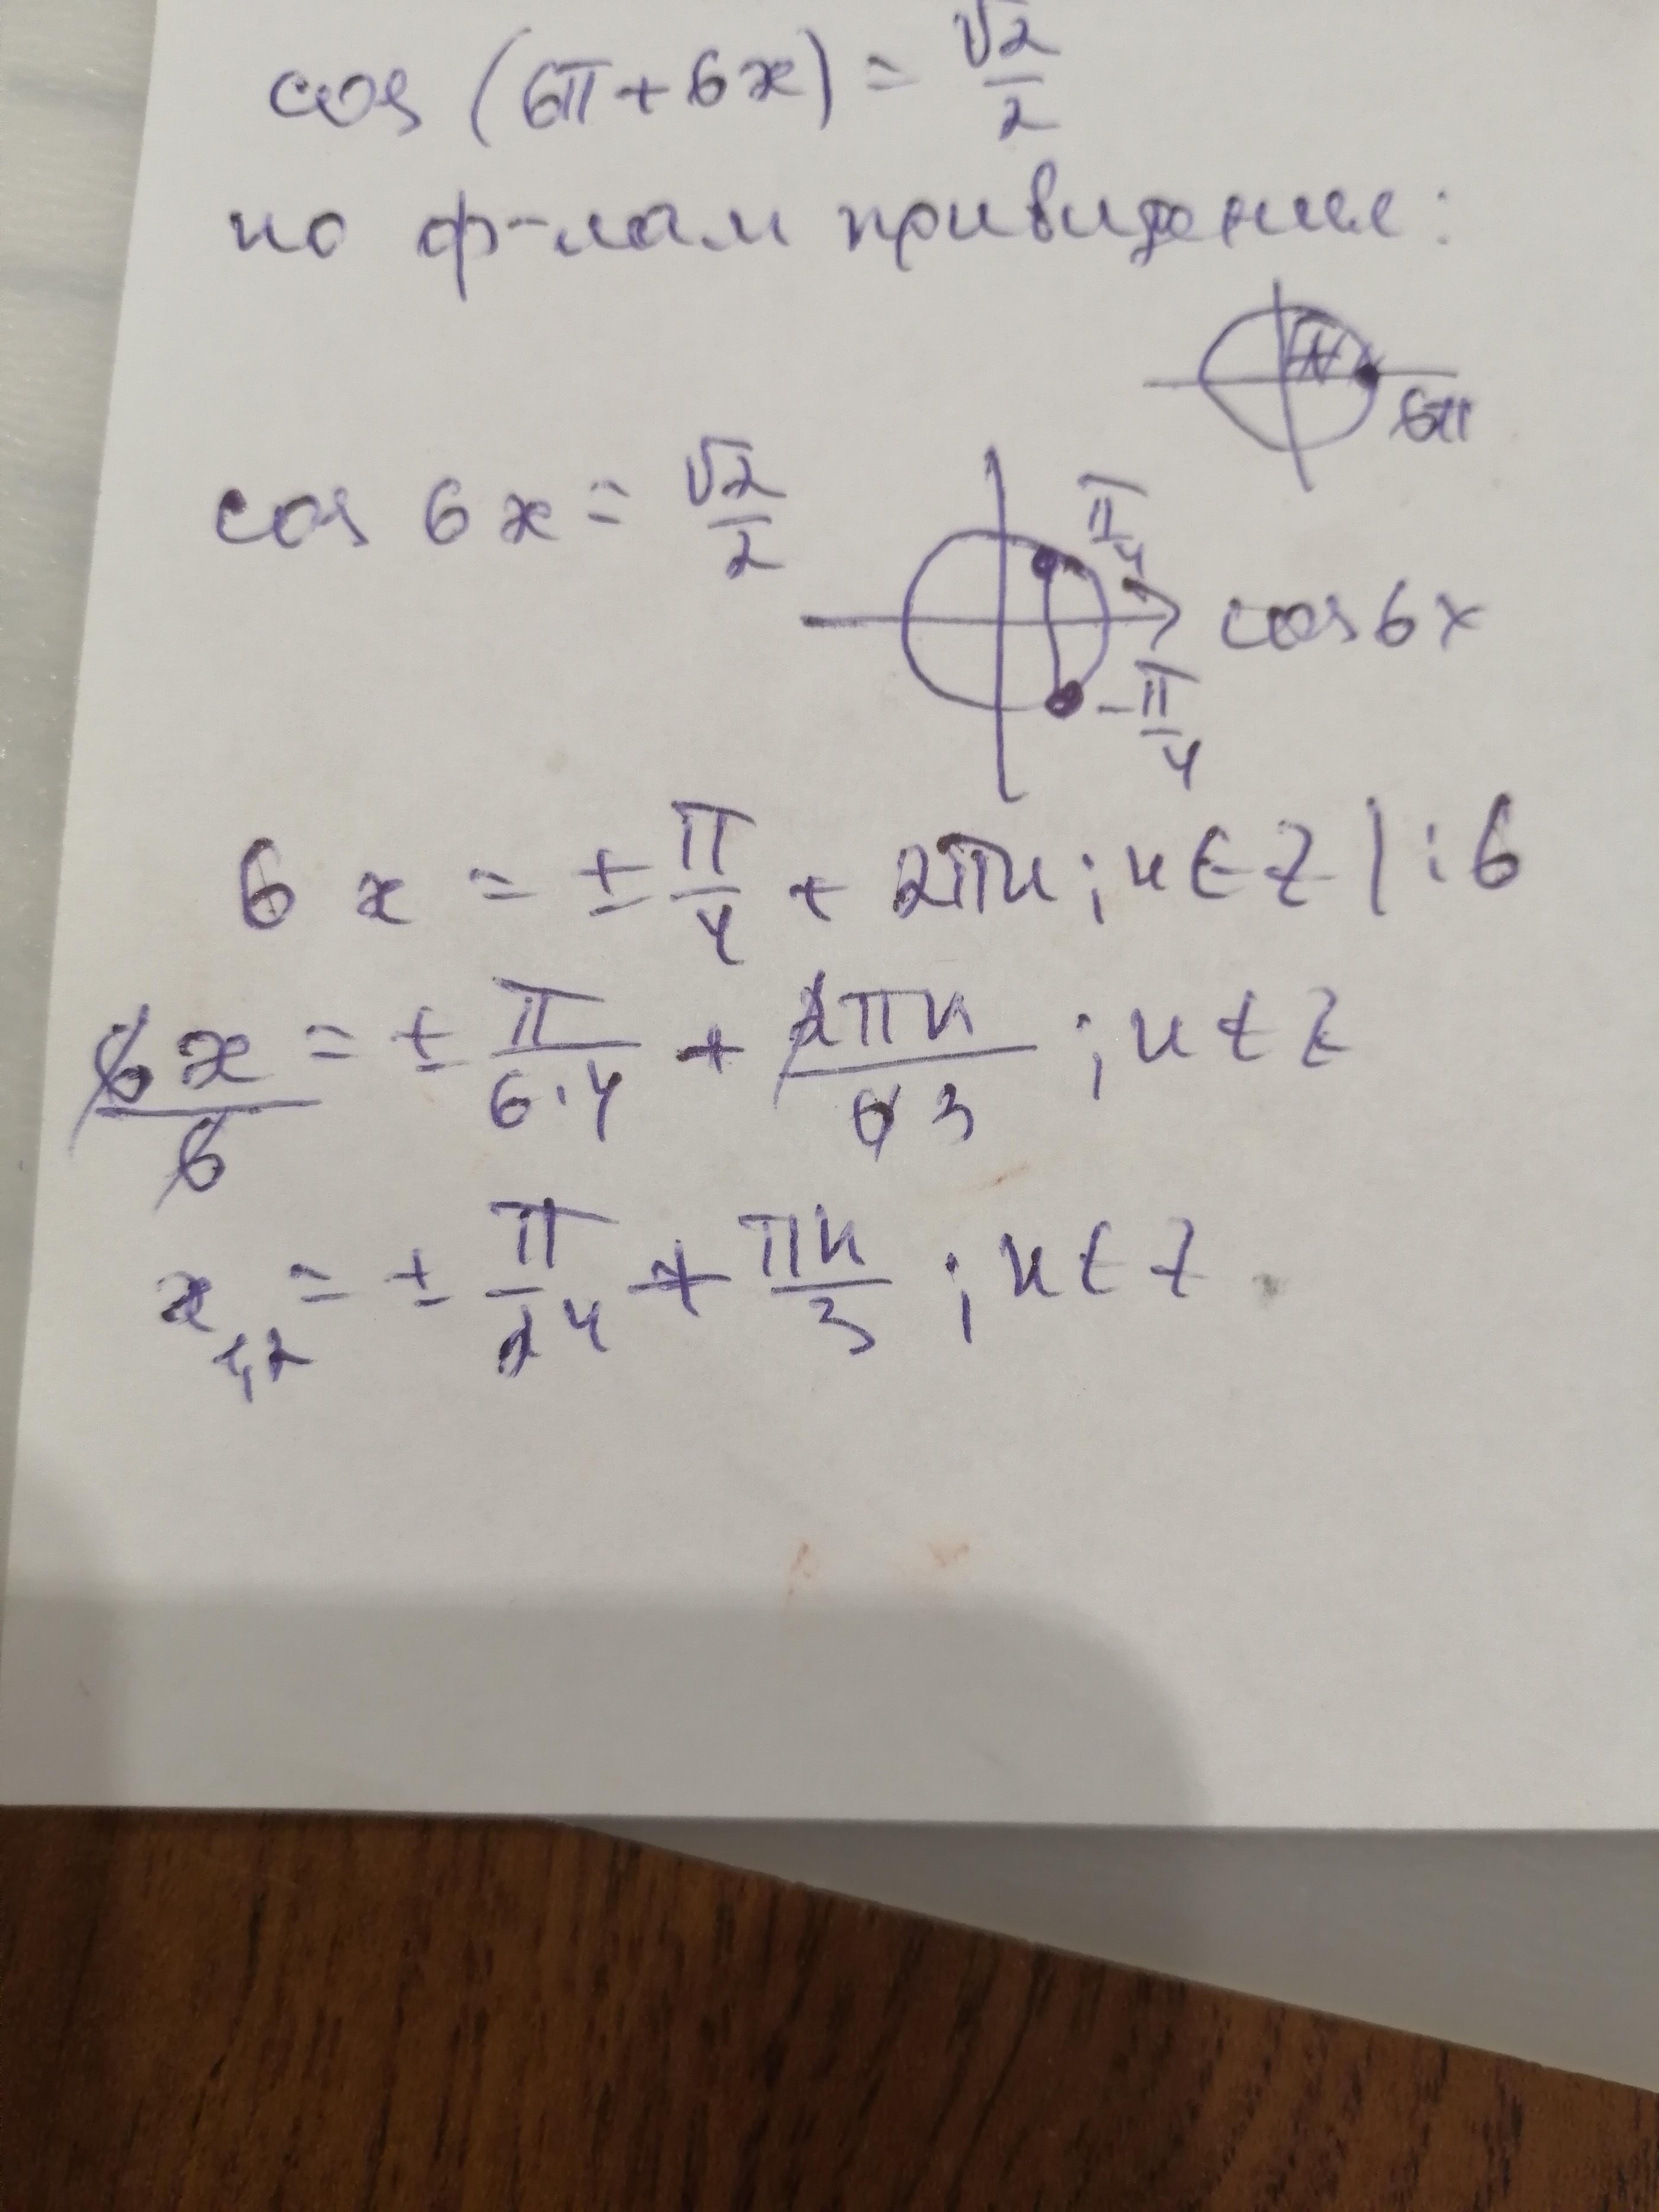 cos (6π + 6x) = √2/2
по ф-лам привидения:
6π
cos 6x = √2/2
π/4
cos 6x
-π/4
6x = ± π/4 + 2πn ; n ∈ Z | : 6
6x/6 = ± π/6·4 + 2πn/6 3 ; n ∈ Z
x1,2 = ± π/24 + πn/3 ; n ∈ Z